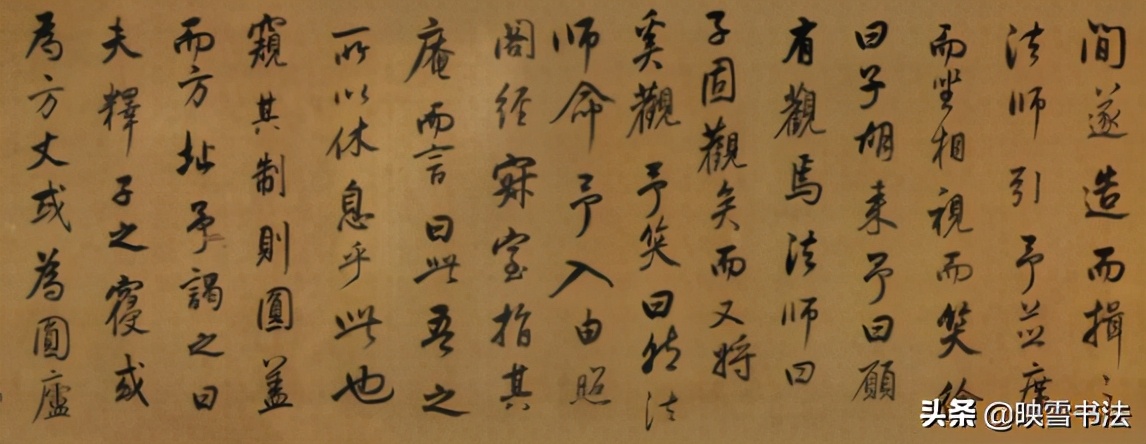 間遂造而揖之
法師引予並席
而坐相視而笑徐
曰子胡来予曰願
有觀焉法師曰
子固觀矣而又將
奚觀予笑曰然法
師命予入由照
閣經寂室指其
庵而言曰此吾之
所以休息乎此也
窺其制則圓蓋
而方址予謁之曰
夫釋子之寢或
為方丈或為圓廬
头条 @映雪书法